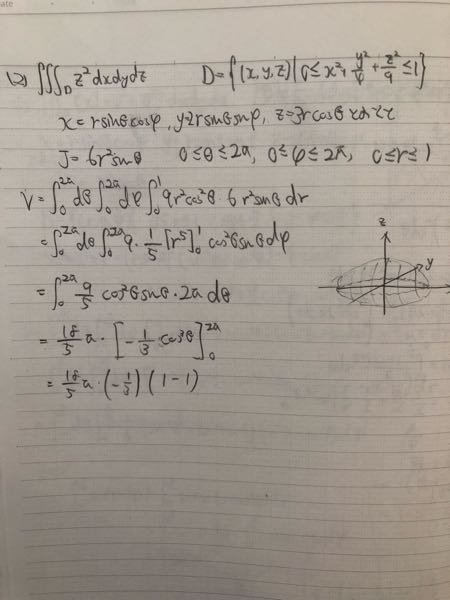 (2) ∭_D z²dxdydz   D={(x,y,z)|0≤x²+y²/4+z²/9≤1}
x=rsinθcosφ, y=2rsinθsinφ, z=3rcosθとおくと
J=6r²sinθ   0≤θ≤2π, 0≤φ≤2π, 0≤r≤1
V=∫₀^2π dθ∫₀^2π dφ∫₀^1 9r²cos²θ·6r²sinθdr
=∫₀^2π dθ∫₀^2π 9·1/5[r⁵]₀^1 cos²θsinθdφ
=∫₀^2π 9/5 cos²θsinθ·2π dθ
=18/5 π·[-1/3 cos³θ]₀^2π
=18/5 π·(-1/3)(1-1)
z
y